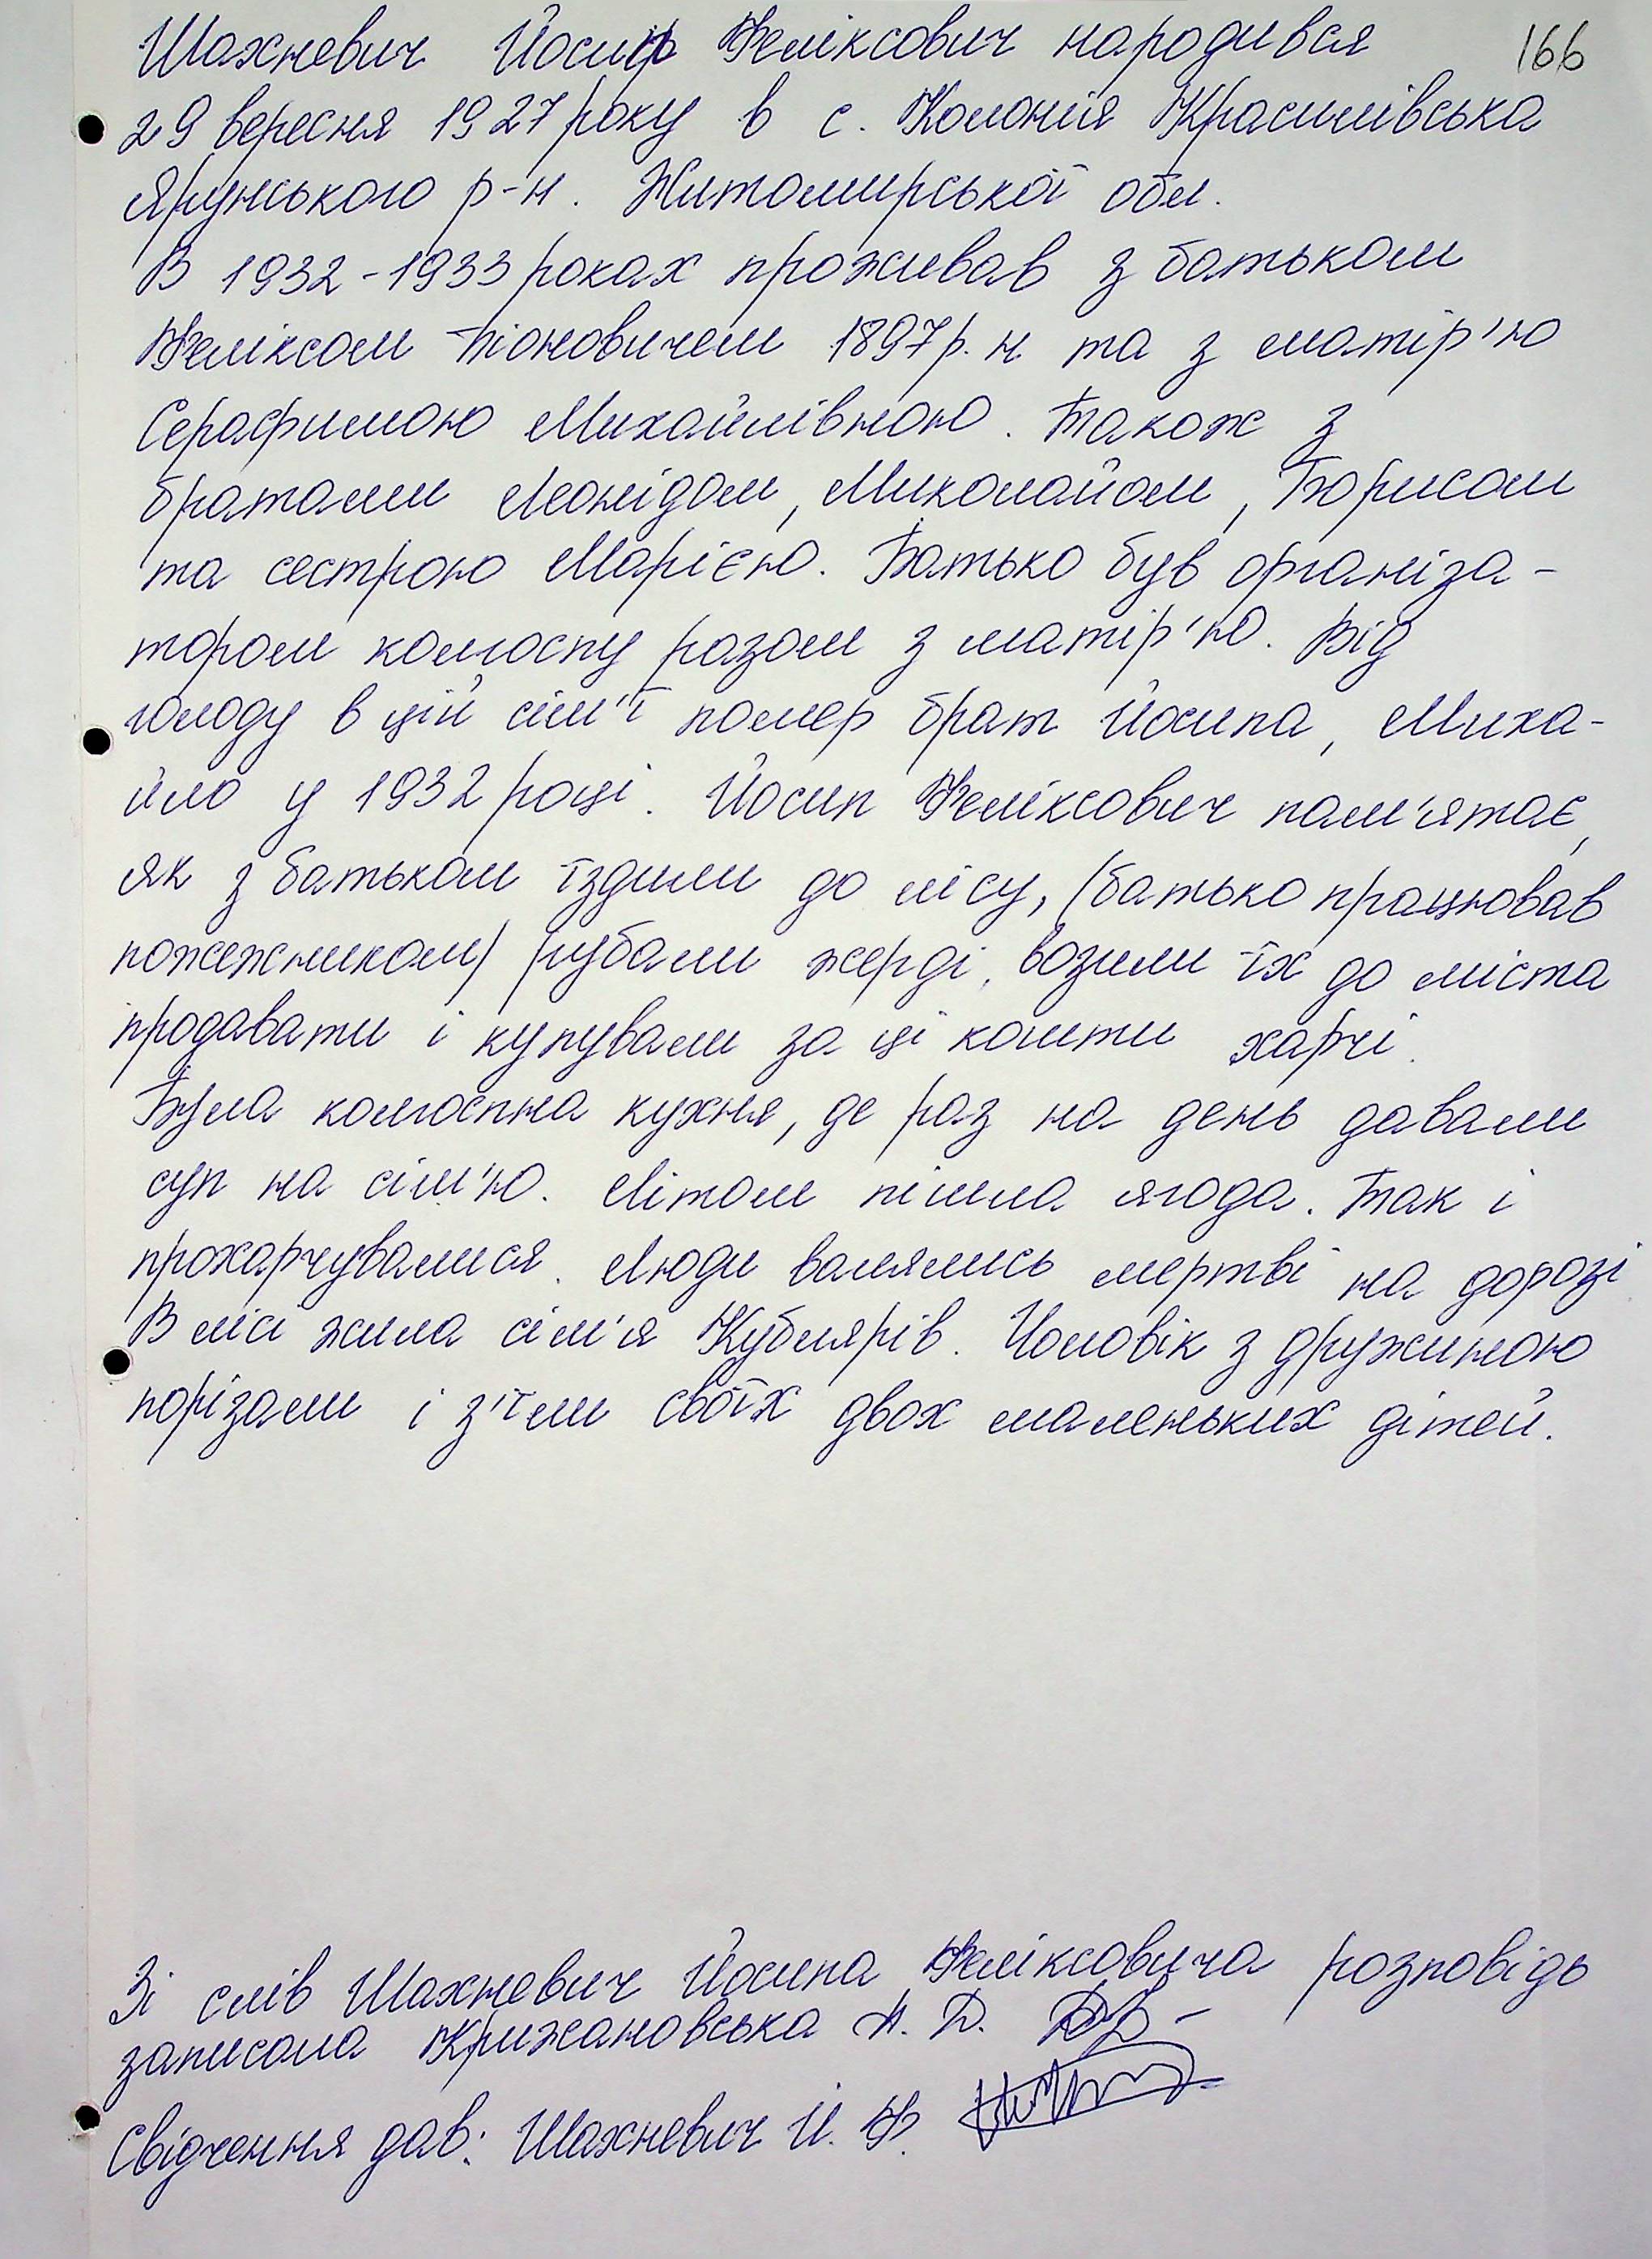 166
Шахневич Йосип Феліксович народився
29 вересня 1927 року в с. Колонія Красилівська
Ярунського р-н. Житомирської обл.
В 1932-1933 роках проживав з батьком
Феліксом Тіоновичем 1897 р. н. та з матір'ю
Серафимою Михайлівною. Також з
братами Леонідом, Миколайом, Борисом
та сестрою Марією. Батько був організа-
тором колгоспу разом з матір'ю. Від
голоду в цій сім'ї помер брат Йосипа, Миха-
йло у 1932 році. Йосип Феліксович пам'ятає,
як з батьком їздили до лісу, (батько працював
пожежником) рубали жерді, возили їх до міста
продавати і купували за ці кошти харчі.
Була колгоспна кухня, де раз на день давали
суп на сім'ю. Літом пішла ягода. Так і
прохарчувалися. Люди валялись мертві на дорозі
В лісі жила сім'я Кублярів. Чоловік з дружиною
порізали і з'їли своїх двох маленьких дітей.
Зі слів Шахневич Йосипа Феліксовича розповідь
записала Крижановська А. Д.
Свідчення дав: Шахневич Й. Ф.